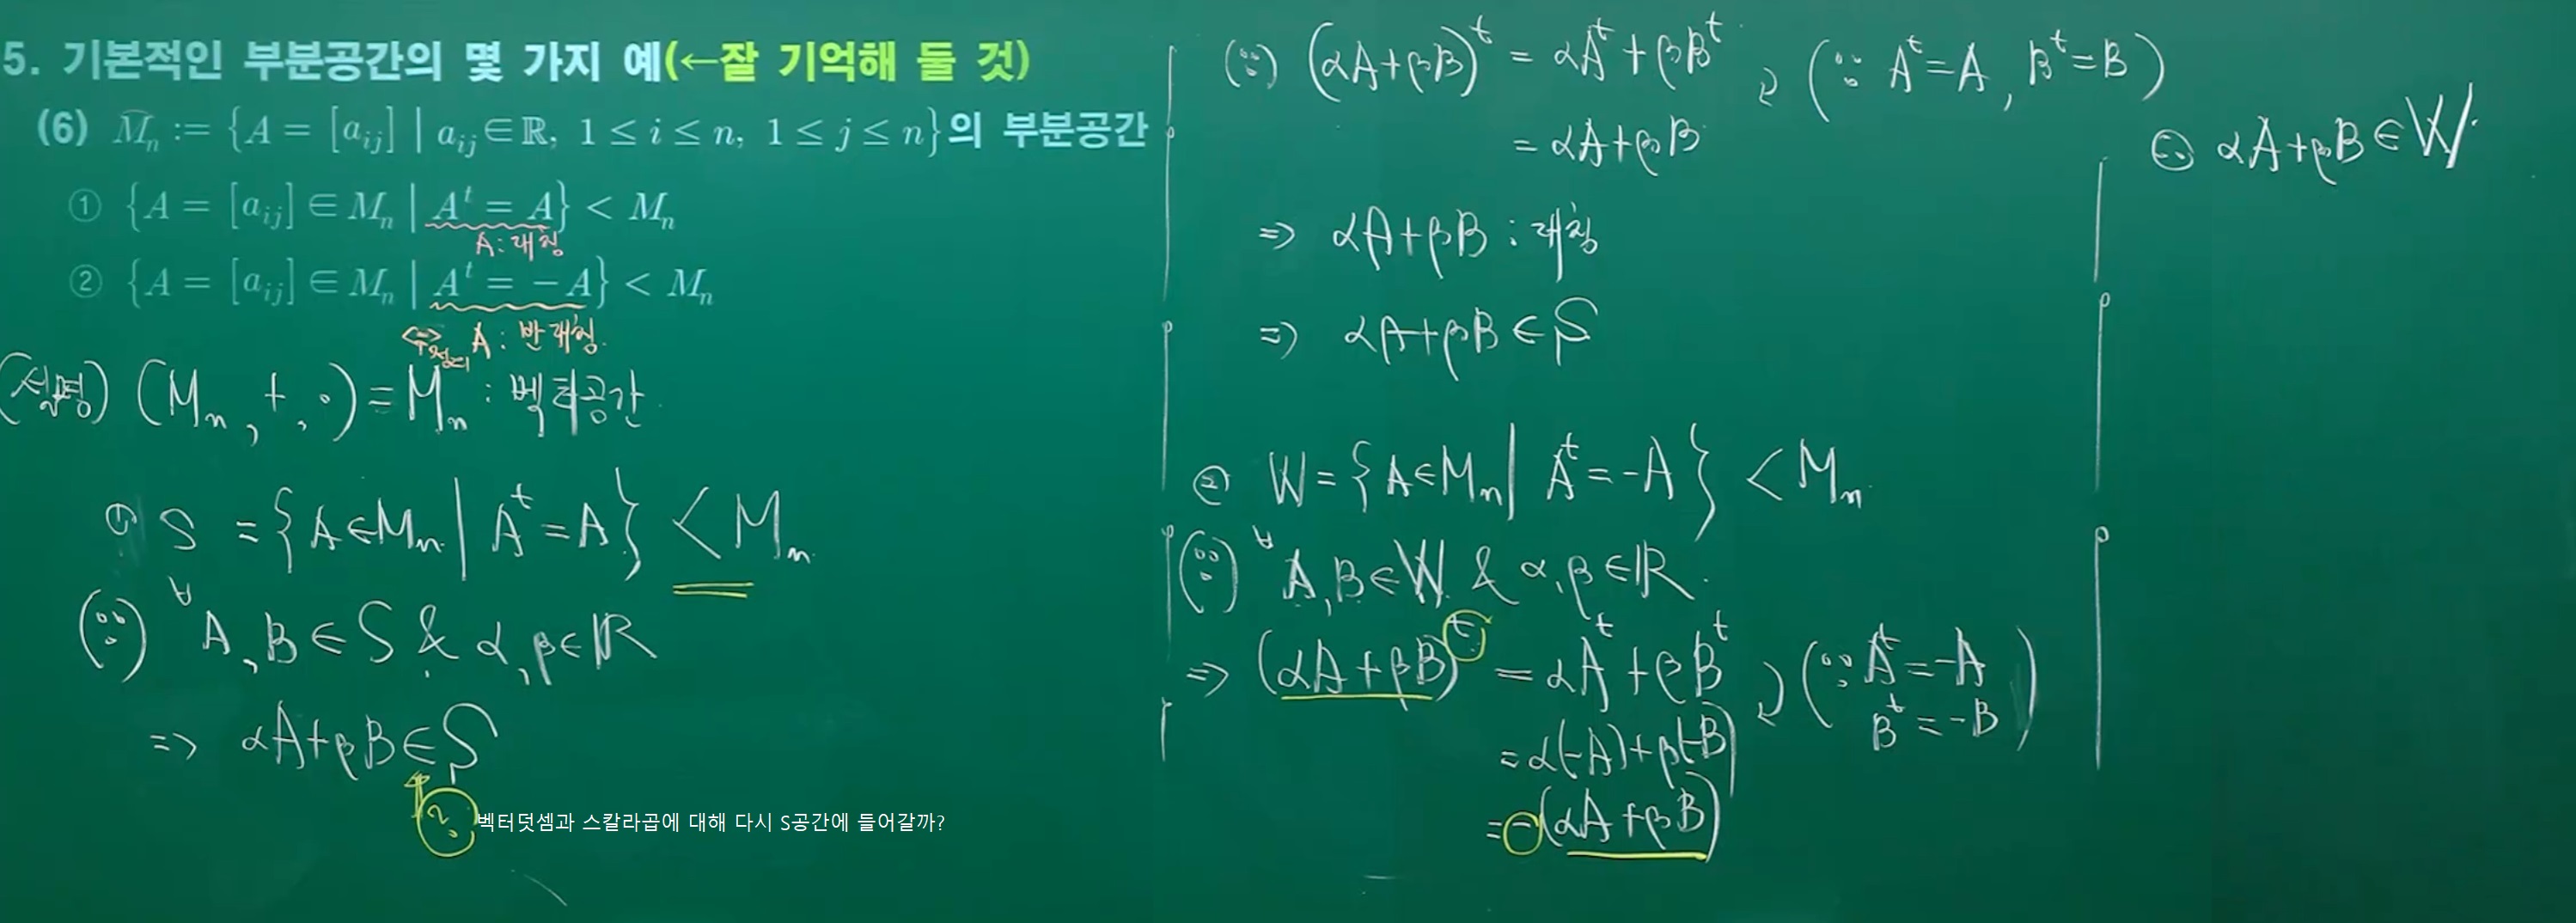 5. 기본적인 부분공간의 몇 가지 예(←잘 기억해 둘 것)
(6) M_n := {A = [a_ij] | a_ij ∈ ℝ, 1 ≤ i ≤ n, 1 ≤ j ≤ n}의 부분공간
① {A = [a_ij] ∈ M_n | A^t = A} < M_n
A : 대칭
② {A = [a_ij] ∈ M_n | A^t = -A} < M_n
⇔ 정의 A : 반대칭.
(설명) (M_n, +, ·) = M_n : 벡터공간
① S = {A ∈ M_n | A^t = A} < M_n.
(∵) ∀A, B ∈ S & α, β ∈ ℝ
⇒ αA + βB ∈ S
? 벡터덧셈과 스칼라곱에 대해 다시 S공간에 들어갈까?
(∵) (αA + βB)^t = αA^t + βB^t (∵ A^t = A, B^t = B)
= αA + βB
⇒ αA + βB : 대칭
⇒ αA + βB ∈ S
② W = {A ∈ M_n | A^t = -A} < M_n
(∵) ∀A, B ∈ W & α, β ∈ ℝ.
⇒ (αA + βB)^t = αA^t + βB^t (∵ A^t = -A
B^t = -B)
= α(-A) + β(-B)
= -(αA + βB)
αA + βB ∈ W.